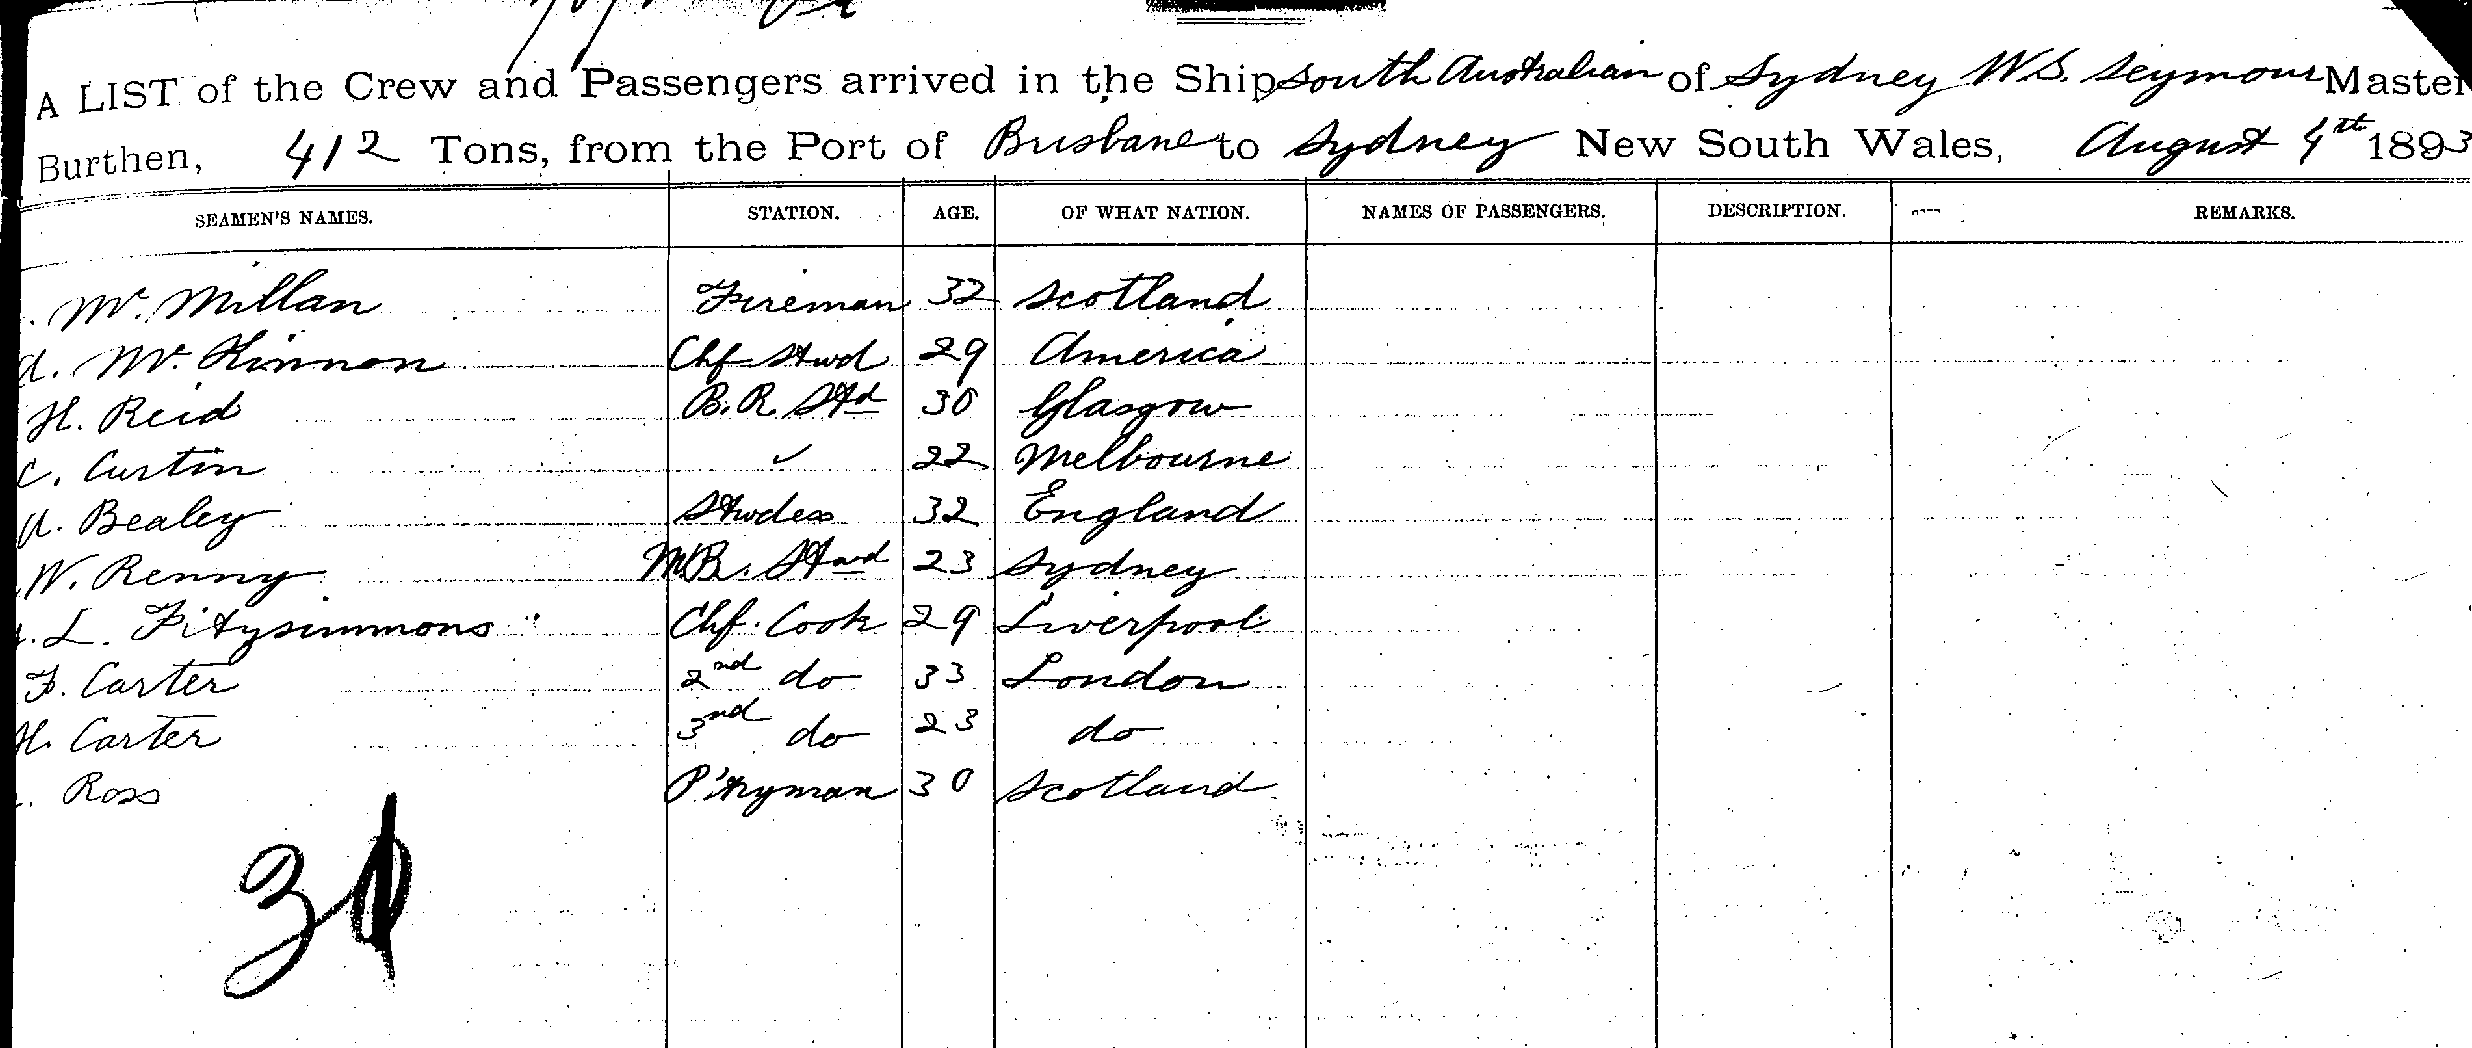 A LIST of the Crew and Passengers arrived in the Ship South Australian of Sydney W.S. Seymour Master
Burthen, 412 Tons, from the Port of Brisbane to Sydney New South Wales, August 4th 1893
SEAMEN'S NAMES. STATION. AGE. OF WHAT NATION. NAMES OF PASSENGERS. DESCRIPTION. REMARKS.
Mc. Millan Fireman 32 Scotland
A. Mc. Kinnon Chf Stwd 29 America
H. Reid B.R. Std 30 Glasgow
C. Curtin ✓ 22 Melbourne
A. Bealey Stwdess 32 England
W. Renny M.R. Stwd 23 Sydney
L. Fitzsimmons Chf. Cook 29 Liverpool
F. Carter 2nd do 33 London
H. Carter 3nd do 23 do
Ross P'tryman 30 Scotland